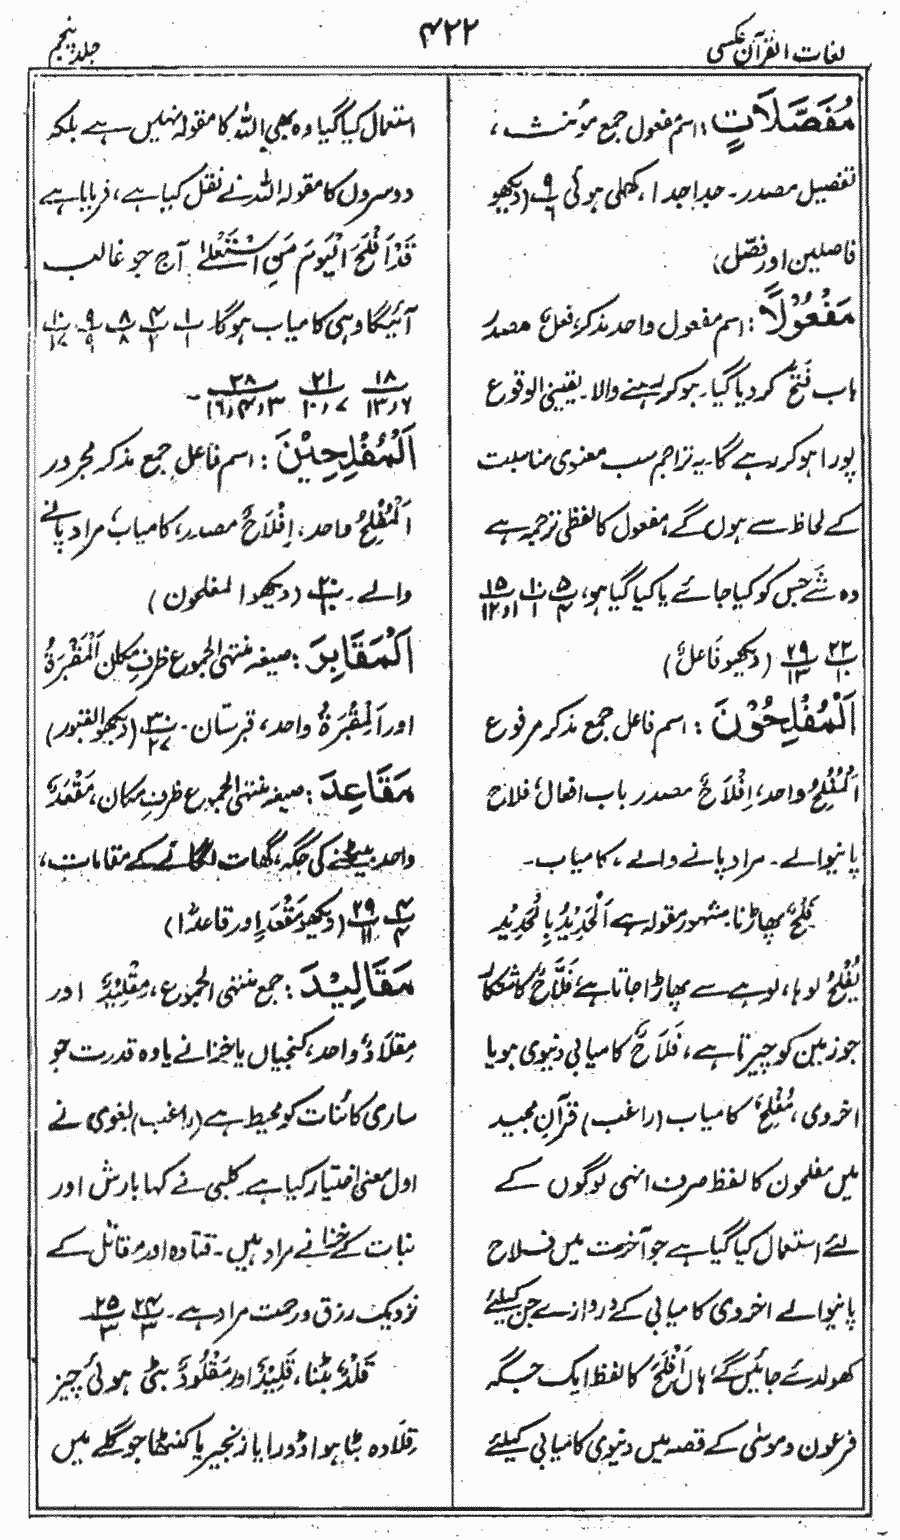 لغات القرآن عکسی
۴۲۲
جلد پنجم
مُفَصَّلَاتٍ: اسم مفعول جمع مؤنث،
تفصیل مصدر۔ جدا جدا، کھلی ہوئی ۹/۶ (دیکھو
فاصلین اور فصّل)
مَفْعُوْلًا: اسم مفعول واحد مذکر، فعلٌ مصدر
باب فَتَحَ کر دیا گیا۔ ہوکر رہنے والا۔ یقینی الوقوع
پورا ہوکر رہے گا۔ یہ تراجم سب معنوی مناسبت
کے لحاظ سے ہوں گے، مفعول کا لفظی ترجمہ ہے
وہ شے جس کو کیا جائے یا کیا گیا ہو، ۵/۴ ۱۰/۱ ۱۵/۱ و ۱۲
۲۲/۱۰ ۲۹/۱۳ (دیکھو فَاعلٌ)
اَلْمُفْلِحُوْنَ: اسم فاعل جمع مذکر مرفوع
اَلْمُفْلِحُ واحد، اِفْلَاحٌ مصدر باب افعال، فلاح
پانیوالے۔ مراد پانے والے، کامیاب۔
فَلْحٌ پھاڑنا۔ مشہور مقولہ ہے اَلْحَدِیْدُ بِالْحَدِیْدِ
یُفْلَحُ لوہا، لوہے سے پھاڑا جاتا ہے، فَلَّاحٌ کاشتکار
جو زمین کو چیرتا ہے، فَلَاحٌ کامیابی دنیوی ہو یا
اخروی، مُفْلِحٌ کامیاب (راغب) قرآنِ مجید
میں مفلحون کا لفظ صرف انہی لوگوں کے
لئے استعمال کیا گیا ہے جو آخرت میں فلاح
پانیوالے اخروی کامیابی کے دروازے جن کیلئے
کھولدئے جائیں گے، ہاں اَفْلَحَ کا لفظ ایک جگہ
فرعون و موسٰی کے قصہ میں دنیوی کامیابی کیلئے
استعمال کیا گیا وہ بھی اللہ کا مقولہ نہیں ہے بلکہ
دوسروں کا مقولہ اللہ نے نقل کیا ہے، فرمایا ہے
قَدْ اَفْلَحَ الْیَوْمَ مَنِ اسْتَعْلٰے آج جو غالب
آئیگا وہی کامیاب ہوگا ۱/۱ ۴/۲ ۸/۸ ۹/۹ ۱۰/۱۷
۱۸/۱۳،۶ ۲۱/۱۰،۷ ۲۸/۱۶،۴،۳ ۔
اَلْمُفْلِحِیْنَ: اسم فاعل جمع مذکر مجرور
اَلْمُفْلِحُ واحد، اِفْلَاحٌ مصدر، کامیاب، مراد پانے
والے۔ ۲۰ (دیکھو المفلحون)
اَلْمَقَابِرَ: صیغہ منتہی الجموع ظرفِ مکان اَلْمَقْبَرَۃُ
اور اَلْمِقْبَرَۃُ واحد، قبرستان۔ ۳۰/۲۷ (دیکھو القبور)
مَقَاعِدَ: صیغہ منتہی الجموع ظرفِ مکان، مَقْعَدٌ
واحد بیٹھنے کی جگہ، گھات لگانے کے مقامات،
۴/۴ ۲۹/۱۱ (دیکھو مَقْعَدٍ اور قاعدًا)
مَقَالِیْدَ: جمع منتہی الجموع، مِقْلِیْدٌ اور
مِقْلَادٌ واحد، کنجیاں یا خزانے یا وہ قدرت جو
ساری کائنات کو محیط ہے (راغب) بغوی نے
اول معنی اختیار کیا ہے۔ کلبی نے کہا بارش اور
نبات کے خزانے مراد ہیں۔ قتادہ اور مقاتل کے
نزدیک رزق و رحمت مراد ہے۔ ۲۴/۳ ۲۵/۳
قَلْدٌ بٹنا، قَلِیْدٌ اور مَقْلُوْدٌ بٹی ہوئی چیز
قِلَادہ بٹا ہوا ڈورا یا زنجیر یا کنٹھا جو گلے میں